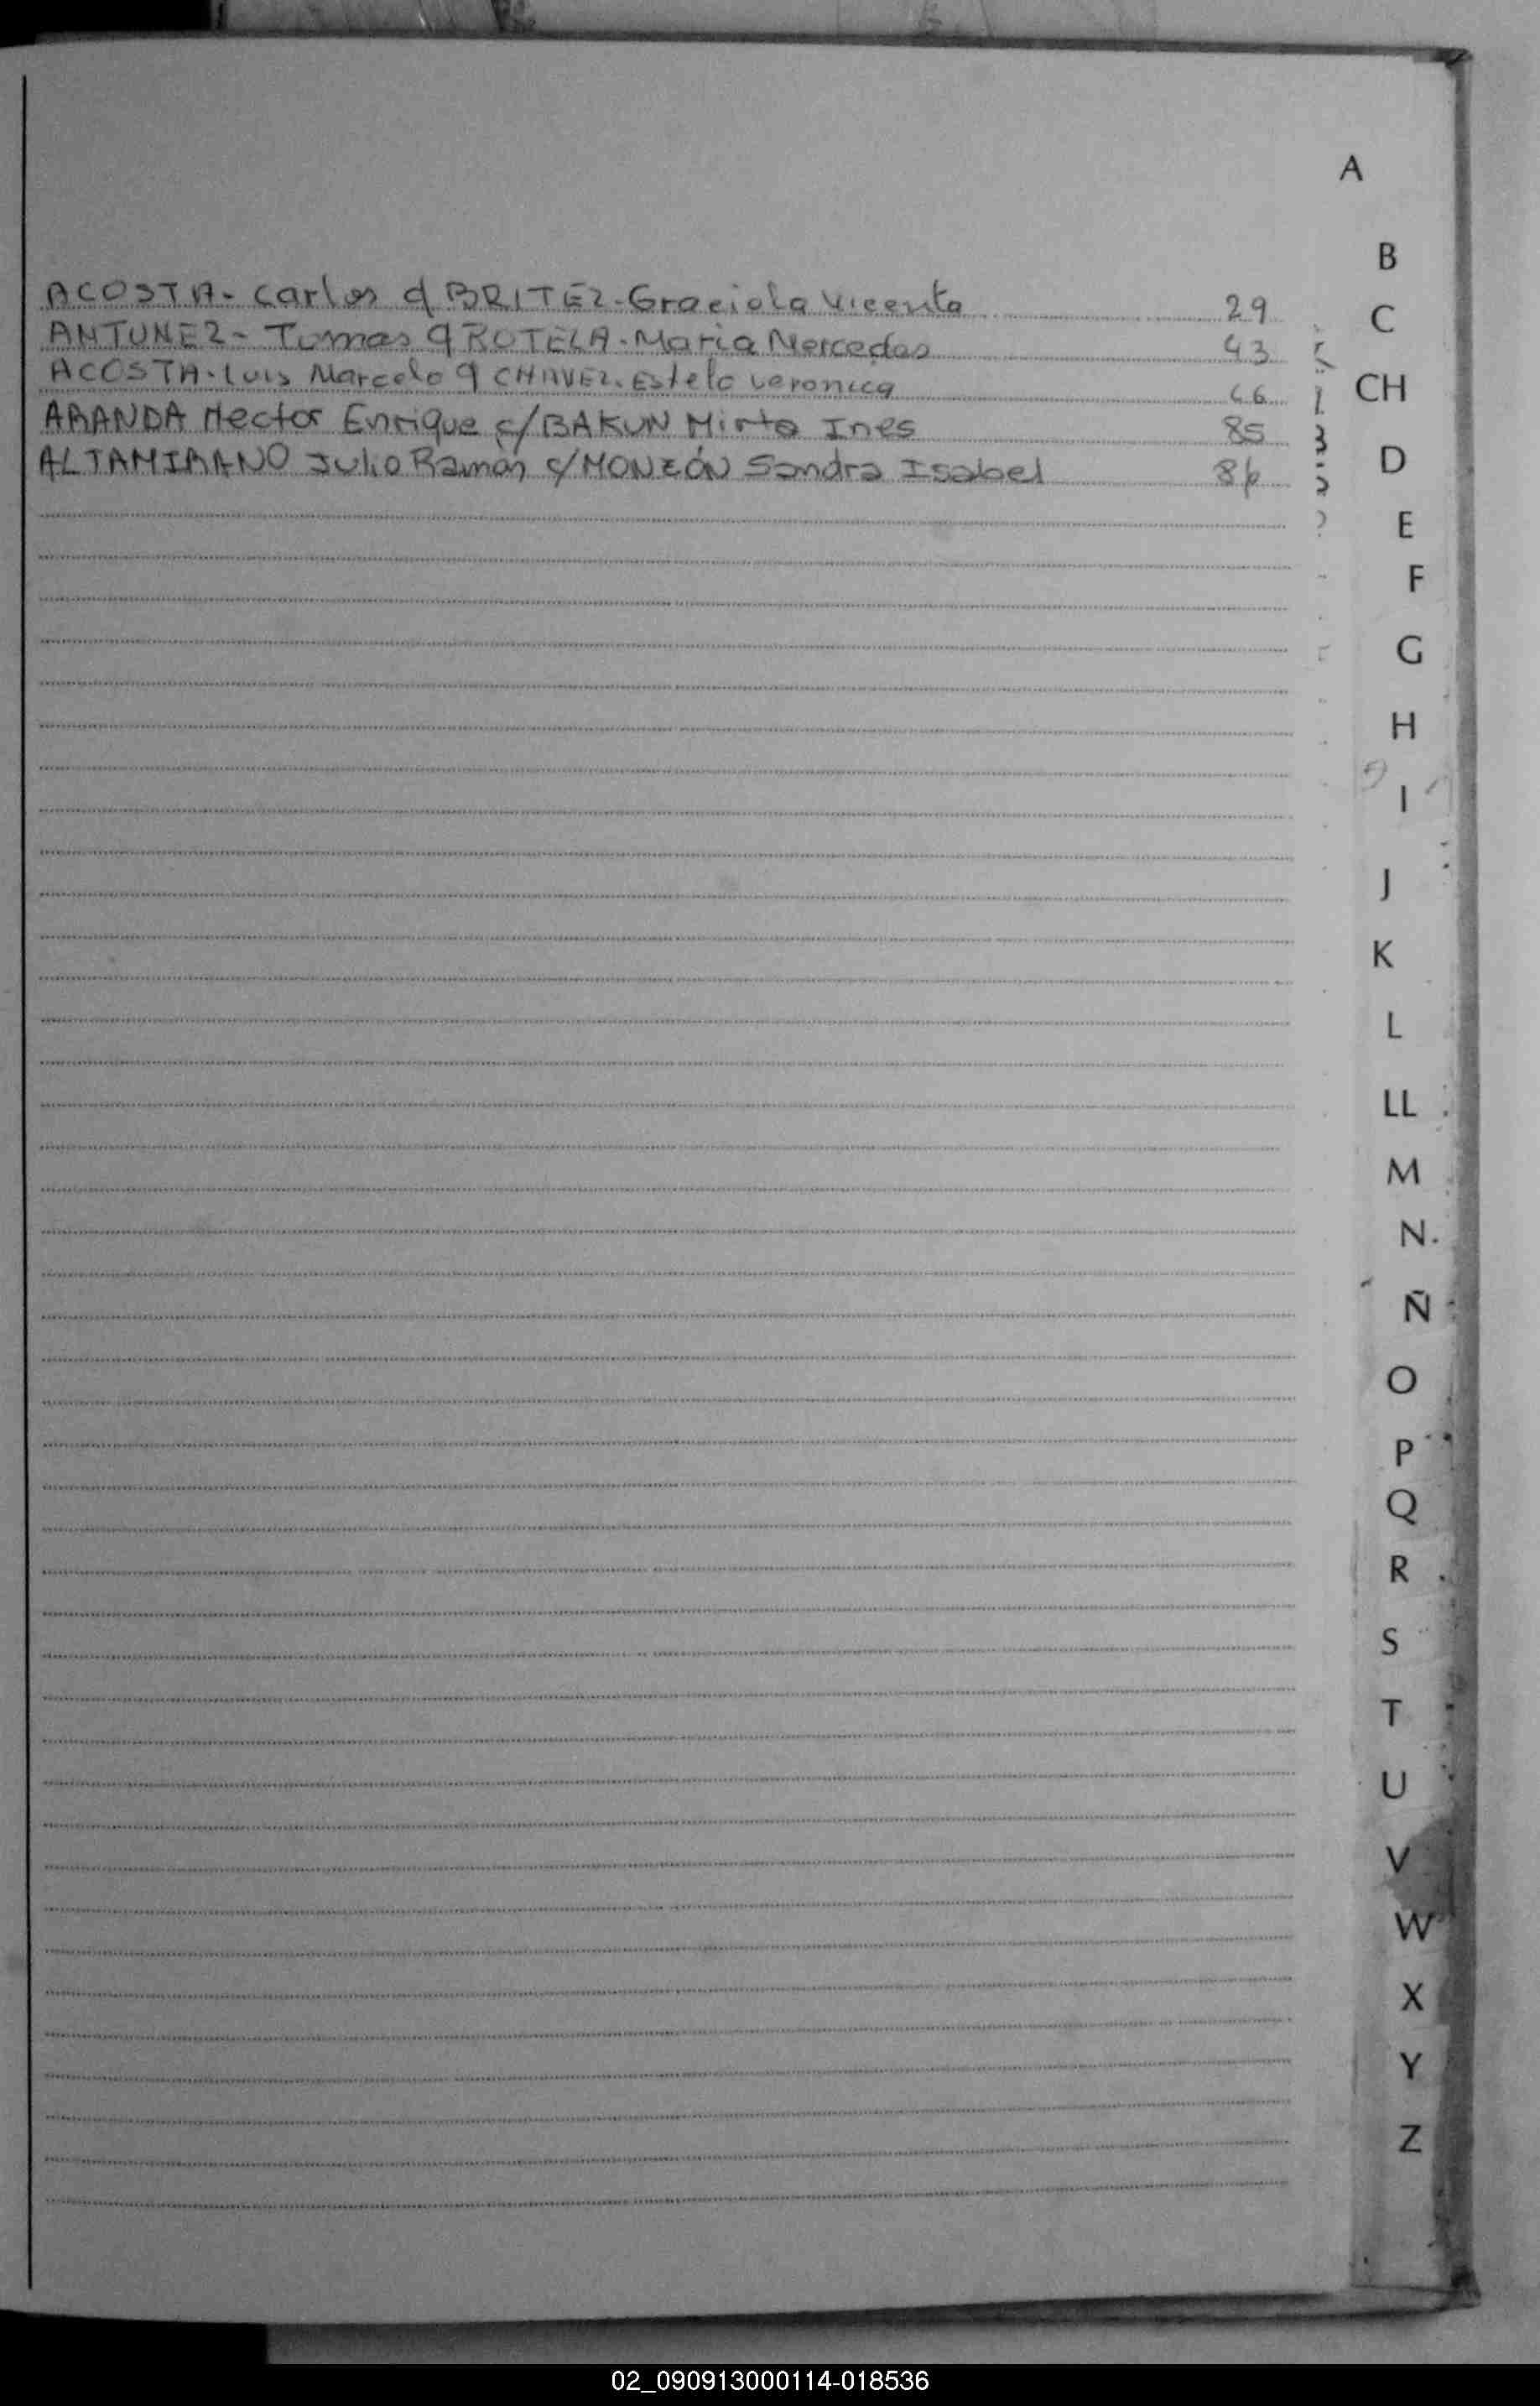 A
B
ACOSTA- Carlos c/ BRITEZ- Graciela Vicenta 29
C
ANTUNEZ- Tomas c/ ROTELA- Maria Mercedes 43
ACOSTA- Luis Marcelo c/ CHAVEZ. Estela Veronica 66
CH
ARANDA Hector Enrique c/ BAKUN Mirta Ines 85
ALTAMIRANO Julio Ramón c/ MONZÓN Sandra Isabel 86
D
E
F
G
H
I
J
K
L
LL
M
N
Ñ
O
P
Q
R
S
T
U
V
W
X
Y
Z
02_090913000114-018536